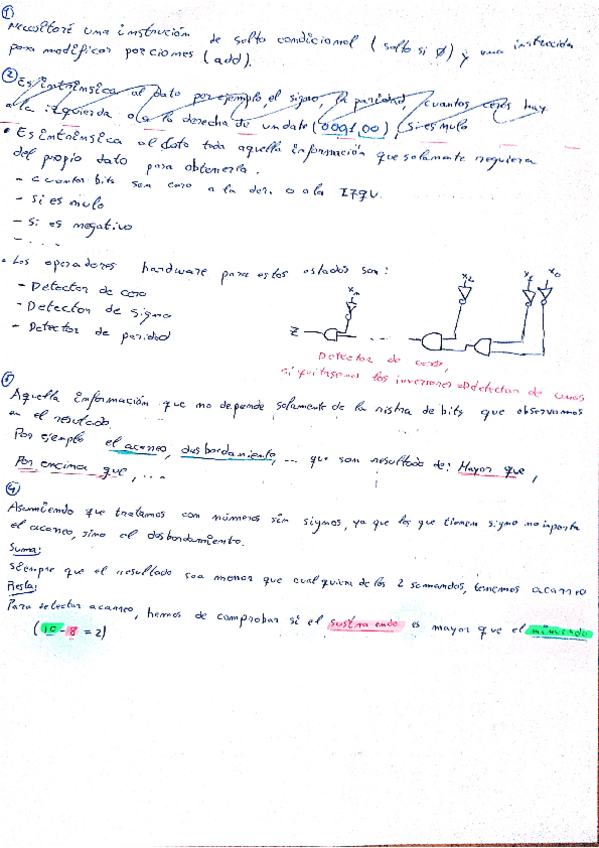 ①
Necesitaré una instrucción de salto condicional (salto si ∅) y una instrucción
para modificar porciones (add).
② Es intrínsica al dato por ejemplo, el signo, la paridad, cuantos ceros hay
a la izquierda o a la derecha de un dato (000100), si es nulo
• Es intrínsica al dato toda aquella información que solamente requiera
del propio dato para obtenerla.
- cuantos bits son cero a la der. o a la izqu.
- Si es nulo
- Si es negativo
- ...
• Los operadores hardware para estos estados son:
- Detector de cero
- Detector de signo
- Detector de paridad
Z ...
Detector de ceros,
si quitasemos los inversores ⇒ Detector de unos
Aquella información que no depende solamente de la ristra de bits que observamos
en el resultado.
Por ejemplo el acarreo, desbordamiento, ... que son resultado de: Mayor que,
Por encima que, ...
④
Asumiendo que tratamos con números sin signos, ya que los que tienen signo no importa
el acarreo, sino el desbordamiento.
Suma:
Siempre que el resultado sea menor que cualquiera de los 2 sumandos, tenemos acarreo
Resta:
Para selectar acarreo, hemos de comprobar si el sustraendo es mayor que el minuendo
(10 - 8 = 2)